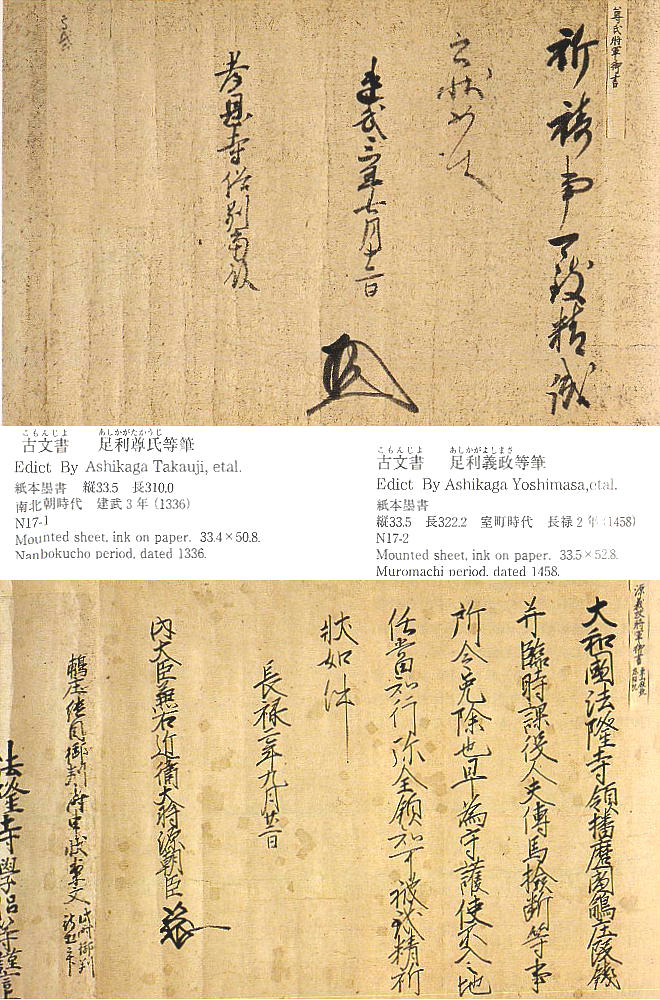 尊氏将軍御書
祈祷事可致精誠
之状如件
建武三年七月十二日
寺僧別當殿
こもんじよ　あしかがたかうじ
古文書　足利尊氏等筆
Edict By Ashikaga Takauji, etal.
紙本墨書　縦33.5　長310.0
南北朝時代　建武3年(1336)
N17-1
Mounted sheet, ink on paper. 33.4×50.8.
Nanbokucho period, dated 1336.
こもんじよ　あしかがよしまさ
古文書　足利義政等筆
Edict By Ashikaga Yoshimasa,etal.
紙本墨書
縦33.5　長322.2　室町時代　長禄2年(1458)
N17-2
Mounted sheet, ink on paper. 33.5×52.8.
Muromachi period, dated 1458.
源義政将軍御書
大和國法隆寺領播磨國鵤庄段錢
并臨時課役人夫傳馬檢断等事
所令免除也早為守護使不入之地
任當知行弥全領知可被致精祈
状如件
長禄二年九月廿一日
内大臣兼右近衛大将源朝臣
鵤庄継目御判
法隆寺學侶等謹言